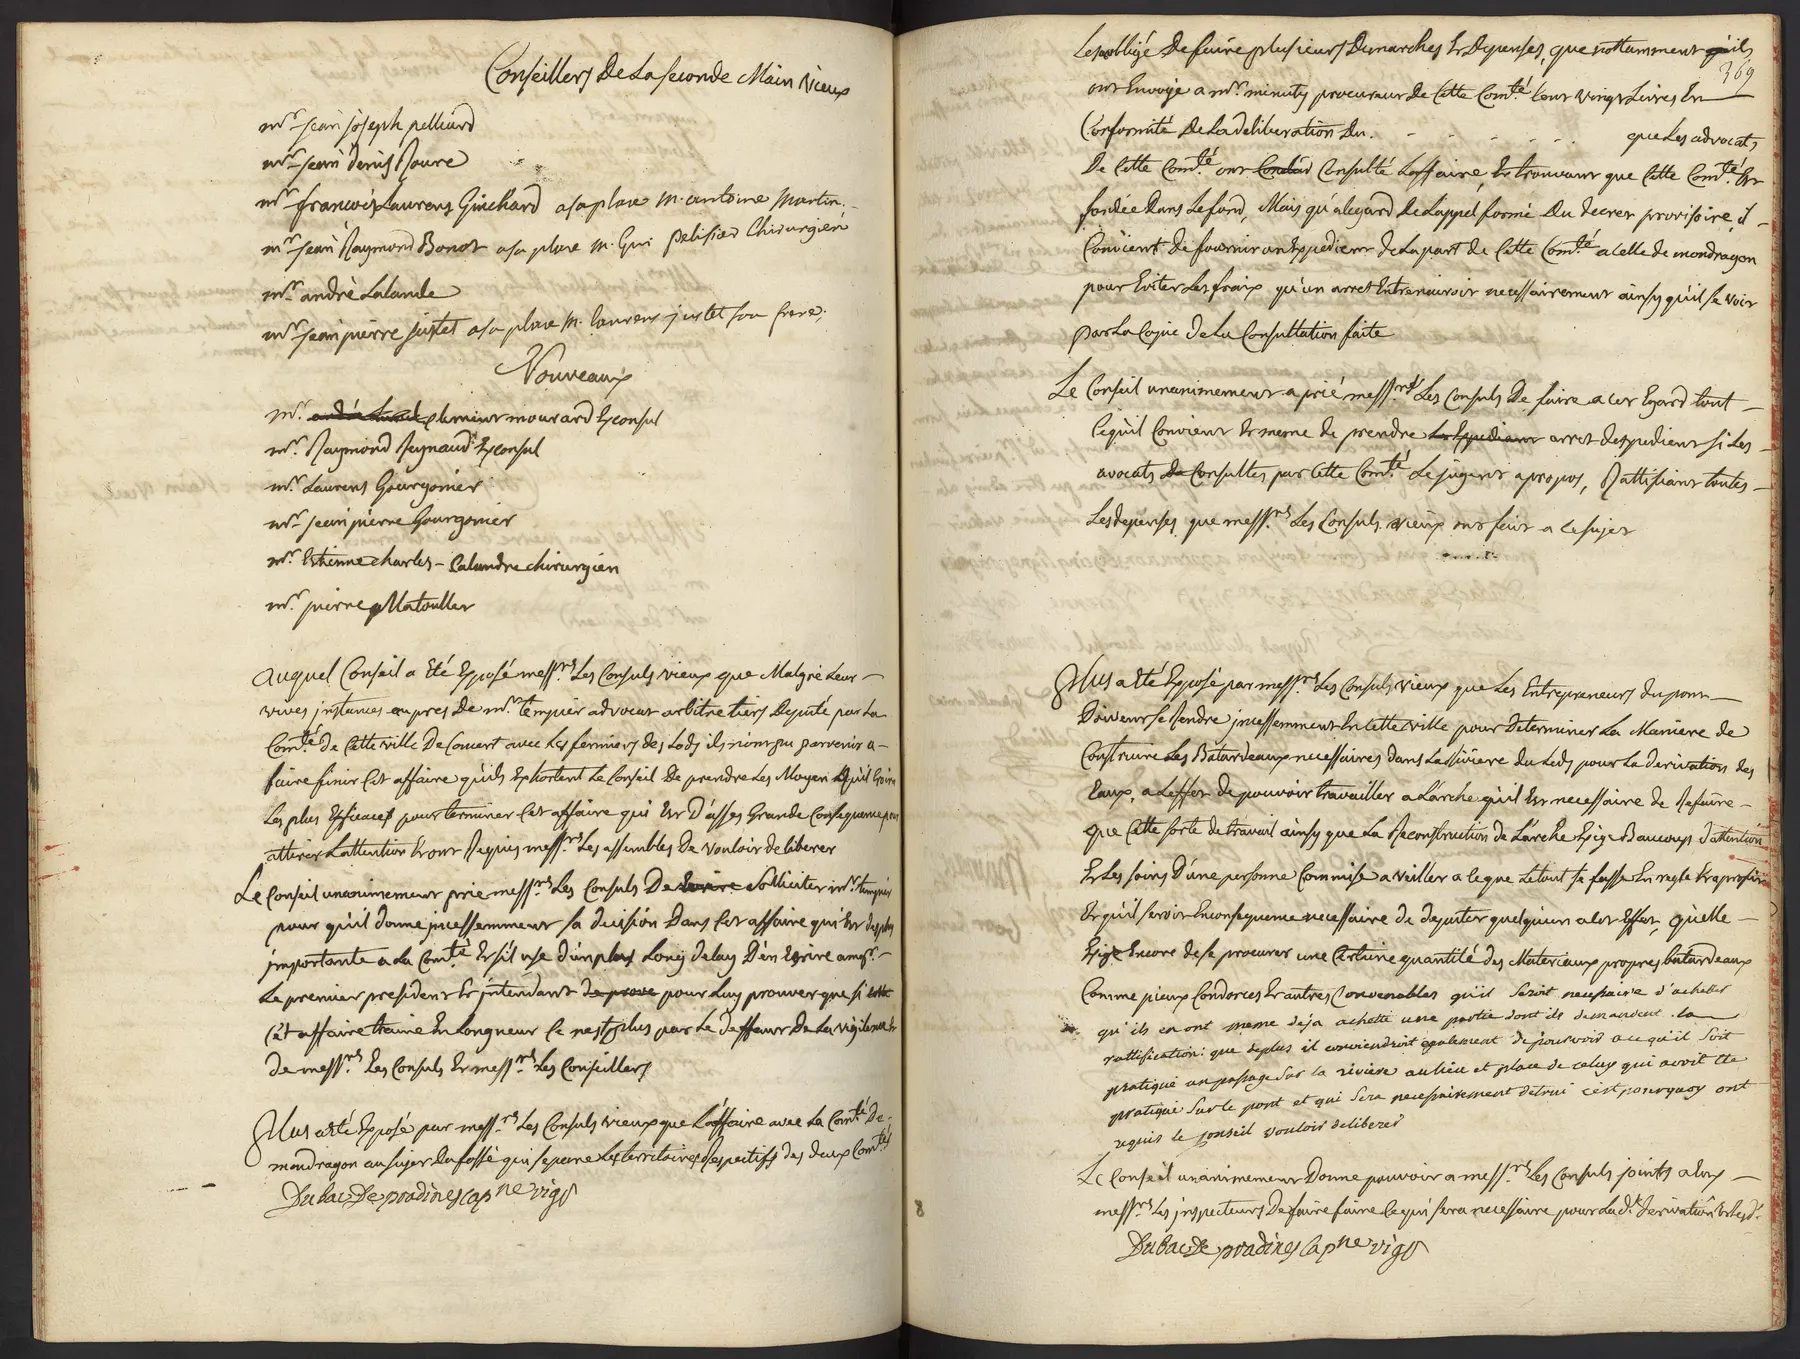 Conseillers De La seconde Main vieux
mr. jean joseph pelliard
mr. jean denis Roure
mr. françois Laurens Guichard a sa place m. antoine Martin.
mr. jean Raymond Bonot a sa place m. Gui pelissier Chirurgien
mr. andrè Lalande
mr. jean pierre justet a sa place m. laurens justet son frere;
Nouveaux
mr. mourard Exconsul
mr. Raymond Reynaud Exconsul
mr. Laurens Gourgonier
mr. jean pierre Gourgonier
mr. Estienne charles Calandre chirurgien
mr. pierre Matouller
auquel Conseil a été Exposé messrs. Les Consuls vieux que Malgré Leur
vives instances aupres De mr. tempier advocat arbitre tiers Deputé par La
Comté De Cette ville De Concert avec Les fermiers des Lods ils n'ont pu parvenir a
faire finir Cet affaire qu'ils Exhortent Le Conseil De prendre Les Moyen qu'il Croira
Les plus Efficaces pour terminer Cet affaire qui Est D'asses Grande Consequence pour
attirer L'attention Et ont Requis messrs. Les assemblés De vouloir deliberer
Le Conseil unanimement prie messrs. Les Consuls De Ecrire Solliciter mr. tempier
pour qu'il donne incessemment sa decision Dans Cet affaire qui Est des plus
importante a La Comté Et s'il use d'un plus Long delay D'en Ecrire a mgr.
Le premier president Et intendant de prove pour Luy prouver que si
Cet affaire traine En Longueur Ce nest plus par Le deffaut De La vigilance Et
De messrs. Les Consuls Et messrs. Les Conseillers
Plus a été Exposé par messrs. Les Consuls vieux que L'affaire avec La Comté De
mondragon au sujet Du fossé qui separe Les territoires Respectifs des deux Comtés
Dubac De pradines cap ne vigr
Les obligé De faire plusieurs Demarches Et Depenses, que nottamment qu'ils
369
ont Envoyé a mr. minuty procureur De Cette Comté Cent vingt Livres En
Conformité De La deliberation Du . . . . . . que Les advocats
De Cette Comté ont Consulté L'affaire, Et trouvant que Cette Comté Est
fondée Dans Le fond, Mais qu'a L'egard De L'appel formé Du decret provisoire, il
Convient de fournir un Expedient de La part de Cette Comté a Celle de mondragon
pour Eviter Les fraix qu'un arrest Entreneiroit necessairement ainsy qu'il se voit
par La Copie de La Consultation faite
Le Conseil unanimement a prié messrs. Les Consuls De faire a Cet Egard tout
Ce qu'il Convient Et meme de prendre Les Expediant arrest d'expedient si Les
avocats Consultés par Cette Comté Le jugent a propos, Rattifiant toutes
Les depenses que messrs. Les Consuls vieux ont fait a Ce sujet
Plus a été Exposé par messrs. Les Consuls vieux que Les Entrepreneurs du pont
Doivent se Rendre incessemment En Cette ville pour Determiner La Maniere de
Construire Les Batardeaux necessaires dans La Riviere du Leds pour La derivation des
Eaux, a L'effet de pouvoir travailler a L'arche qu'il Est necessaire de Refaire
que Cette sorte de travail ainsy que La Reconstruction de L'arche Exige Beaucoup d'attention
Et Les soins D'une personne Commise a veiller a Ce que Le tout se fasse En regle Et a profit
Et qu'il seroit En consequence necessaire de deputer quelqu'un a Cet Effet, quelle
Exige Encore de se procurer une Certaine quantité des Materiaux propres batardeaux
Comme pieux Condorces Et autres Convenables qu'il seroit necessaire d'achetter
qu'ils en ont meme deja achetté une partie dont ils demandent la
rattification: que deplus il conviendroit egalement de pourvoir a ce qu'il soit
pratiqué un passage sur la riviere au lieu et place de celuy qui avoit ete
pratiqué sur le pont et qui sera necessairement detrui c'est pourquoy ont
requis le conseil vouloir deliberer
Le Conseil unanimement Donne pouvoir a messrs. Les Consuls joints a Eux
messrs. Les inspecteurs De faire faire Ce qui sera necessaire pour La dt. derivation
Dubac De pradines cap ne vigr